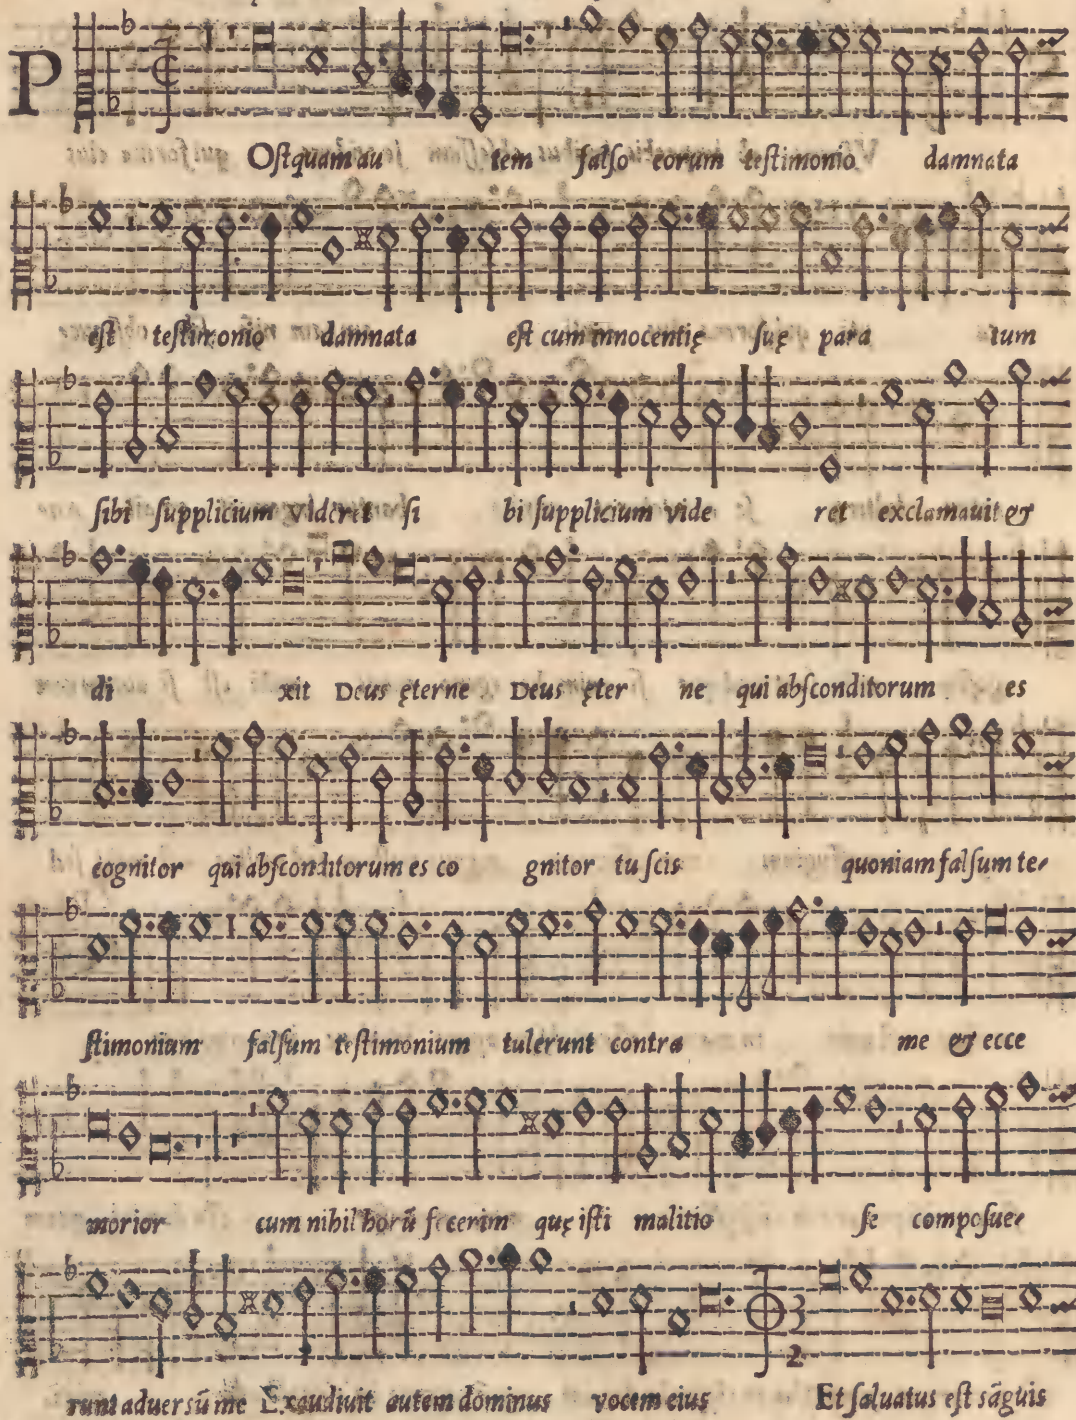 POstquam au tem falso eorum testimonio damnata
est testimonio damnata est cum innocentię suę para tum
sibi supplicium videret si bi supplicium vide ret exclamauit &
di xit Deus ęterne Deus ęter ne qui absconditorum es
cognitor qui absconditorum es co gnitor tu scis quoniam falsum te-
stimonium falsum testimonium tulerunt contra me & ecce
morior cum nihil horũ fecerim quę isti malitio se composue-
runt aduersũ me Exaudiuit autem dominus vocem eius Et saluatus est sãguis